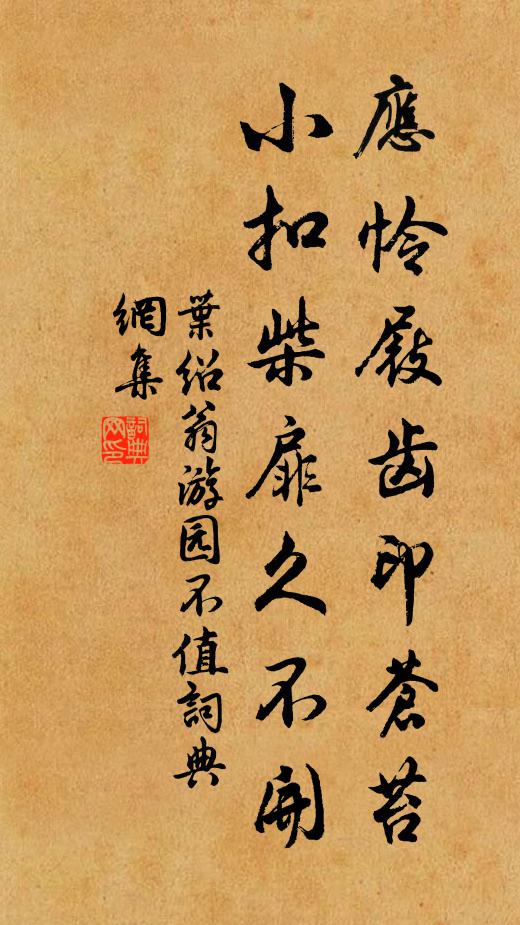 應怜屐齿印蒼苔
小扣柴扉久不開
葉紹翁游园不值詞典
網集
詞典网印